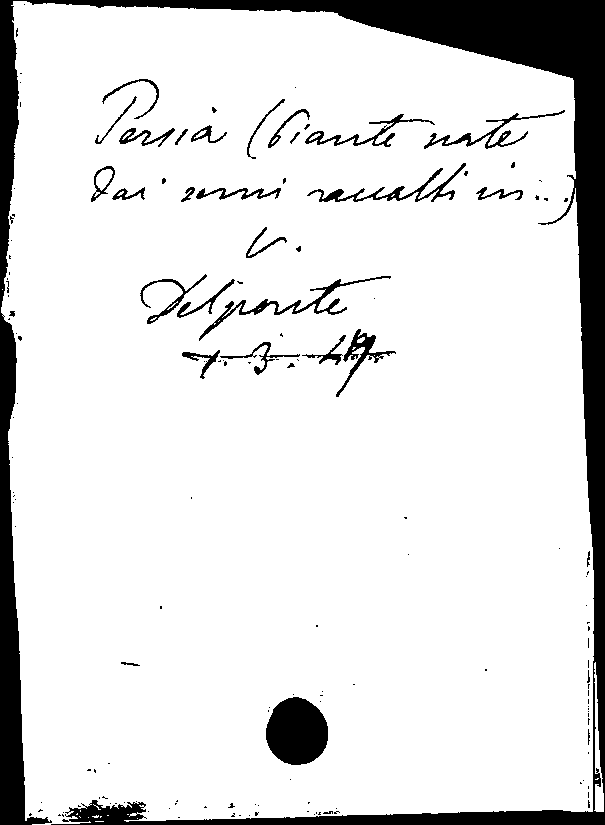 Persia (Piante nate
dai semi raccolti in...)
V.
Delponte
1. 3.